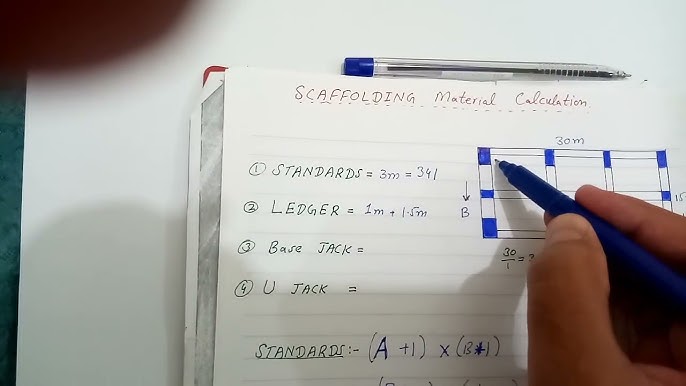 SCAFFOLDING Material Calculation.
30m
① STANDARDS = 3m = 341
② LEDGER = 1m + 1.5m
B
15
③ Base JACK =
30/1 = ?
④ U JACK =
STANDARDS:- (A +1) x (B+1)